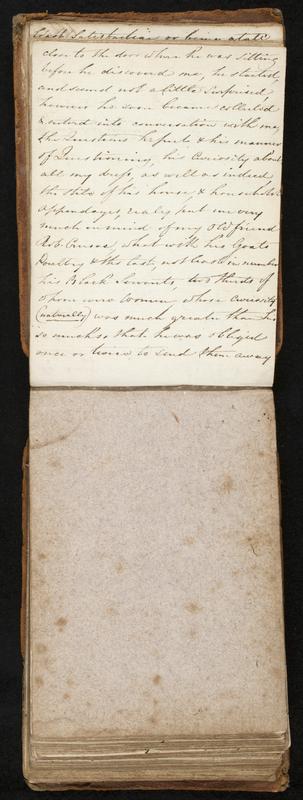 close to the door when he was sitting
before he discovered me, he started,
and seemed not a little surprised
however he soon became collected
& enterd into conversation with me,
the Questions he put, & his manner
of Questioning, his Curiosity about
all my dress, as well as indeed
the state of his house, & household
appendages, realy put me very
much in mind of my old friend
Rob Crusoe, what with his Goats
Poultry & the last, not least in number
his Black Servants, two thirds of
whom were Women, whose Curiosity
(naturally) was much greater than his
so much so that he was obliged
once or twice to send them away